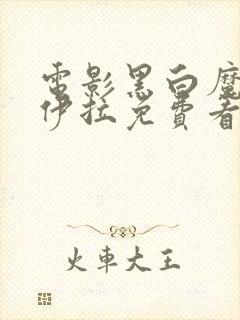 電影黑白魔
伊拉免費看
火車大王